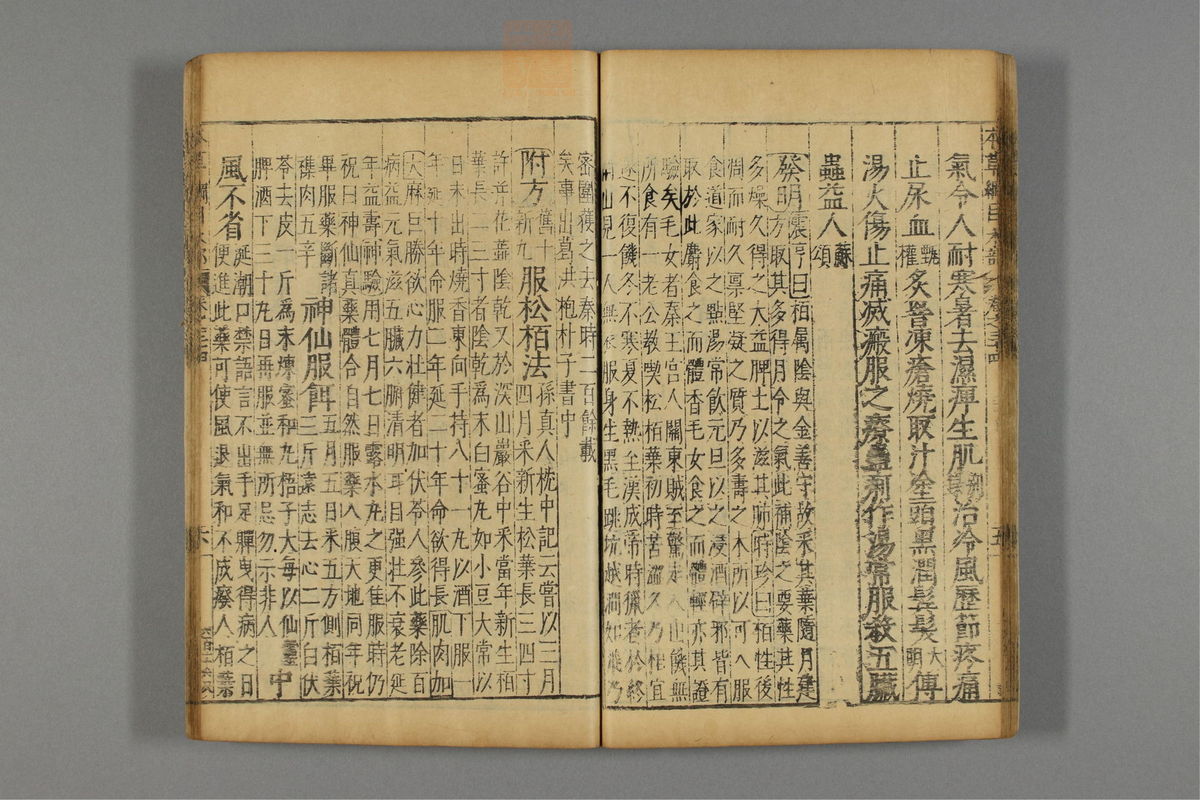 氣令人耐寒暑去濕痺生肌別錄治冷風歷節疼痛
止尿血甄權炙罯凍瘡燒取汁塗頭黑潤鬢髮大明傅
湯火傷止痛滅瘢服之療蠱痢作湯常服殺五臟
蟲益人蘇頌
發明震亨曰栢属陰與金善守故釆其葉隨月建
方取其多得月令之氣此補陰之要藥其性
多燥久得之大益脾土以滋其肺時珍曰栢性後
凋而耐久稟堅凝之質乃多壽之木所以可入服
食道家以之點湯常飲元旦以之浸酒辟邪皆有
取於此麝食之而體香毛女食之而體輕亦其證
驗矣毛女者秦王宮人關東賊至驚走入山饑無
所食有一老公教喫松栢葉初時苦澀久乃相宜
遂不復饑冬不寒夏不熱至漢成帝時獵者於終
南山見一人無衣服身生黑毛跳坑越澗如飛乃
密圍獲之去秦時二百餘載
矣事出葛洪抱朴子書中
附方舊十新九服松栢法孫真人枕中記云嘗以三月
四月采新生松葉長三四寸
許并花蕋陰乾又於深山巖谷中采當年新生栢
葉長二三寸者陰乾爲末白蜜丸如小豆大常以
日未出時燒香東向手持八十一丸以酒下服一
年延十年命服二年延二十年命欲得長肌肉加
大麻巨勝欲心力壯健者加伏苓人參此藥除百
病益元氣滋五臟六腑清明耳目强壯不衰老延
年益壽神驗用七月七日露水丸之更佳服時仍
祝曰神仙真藥體合自然服藥入腹天地同年祝
畢服藥斷諸
雜肉五辛神仙服餌五月五日釆五方側栢葉
三斤遠志去心二斤白伏
苓去皮一斤爲末煉蜜和丸梧子大每以仙靈
脾酒下三十丸日再服並無所忌勿示非人中
風不省涎潮口禁語言不出手足嚲曳得病之日
便進此藥可使風退氣和不成廢人栢葉